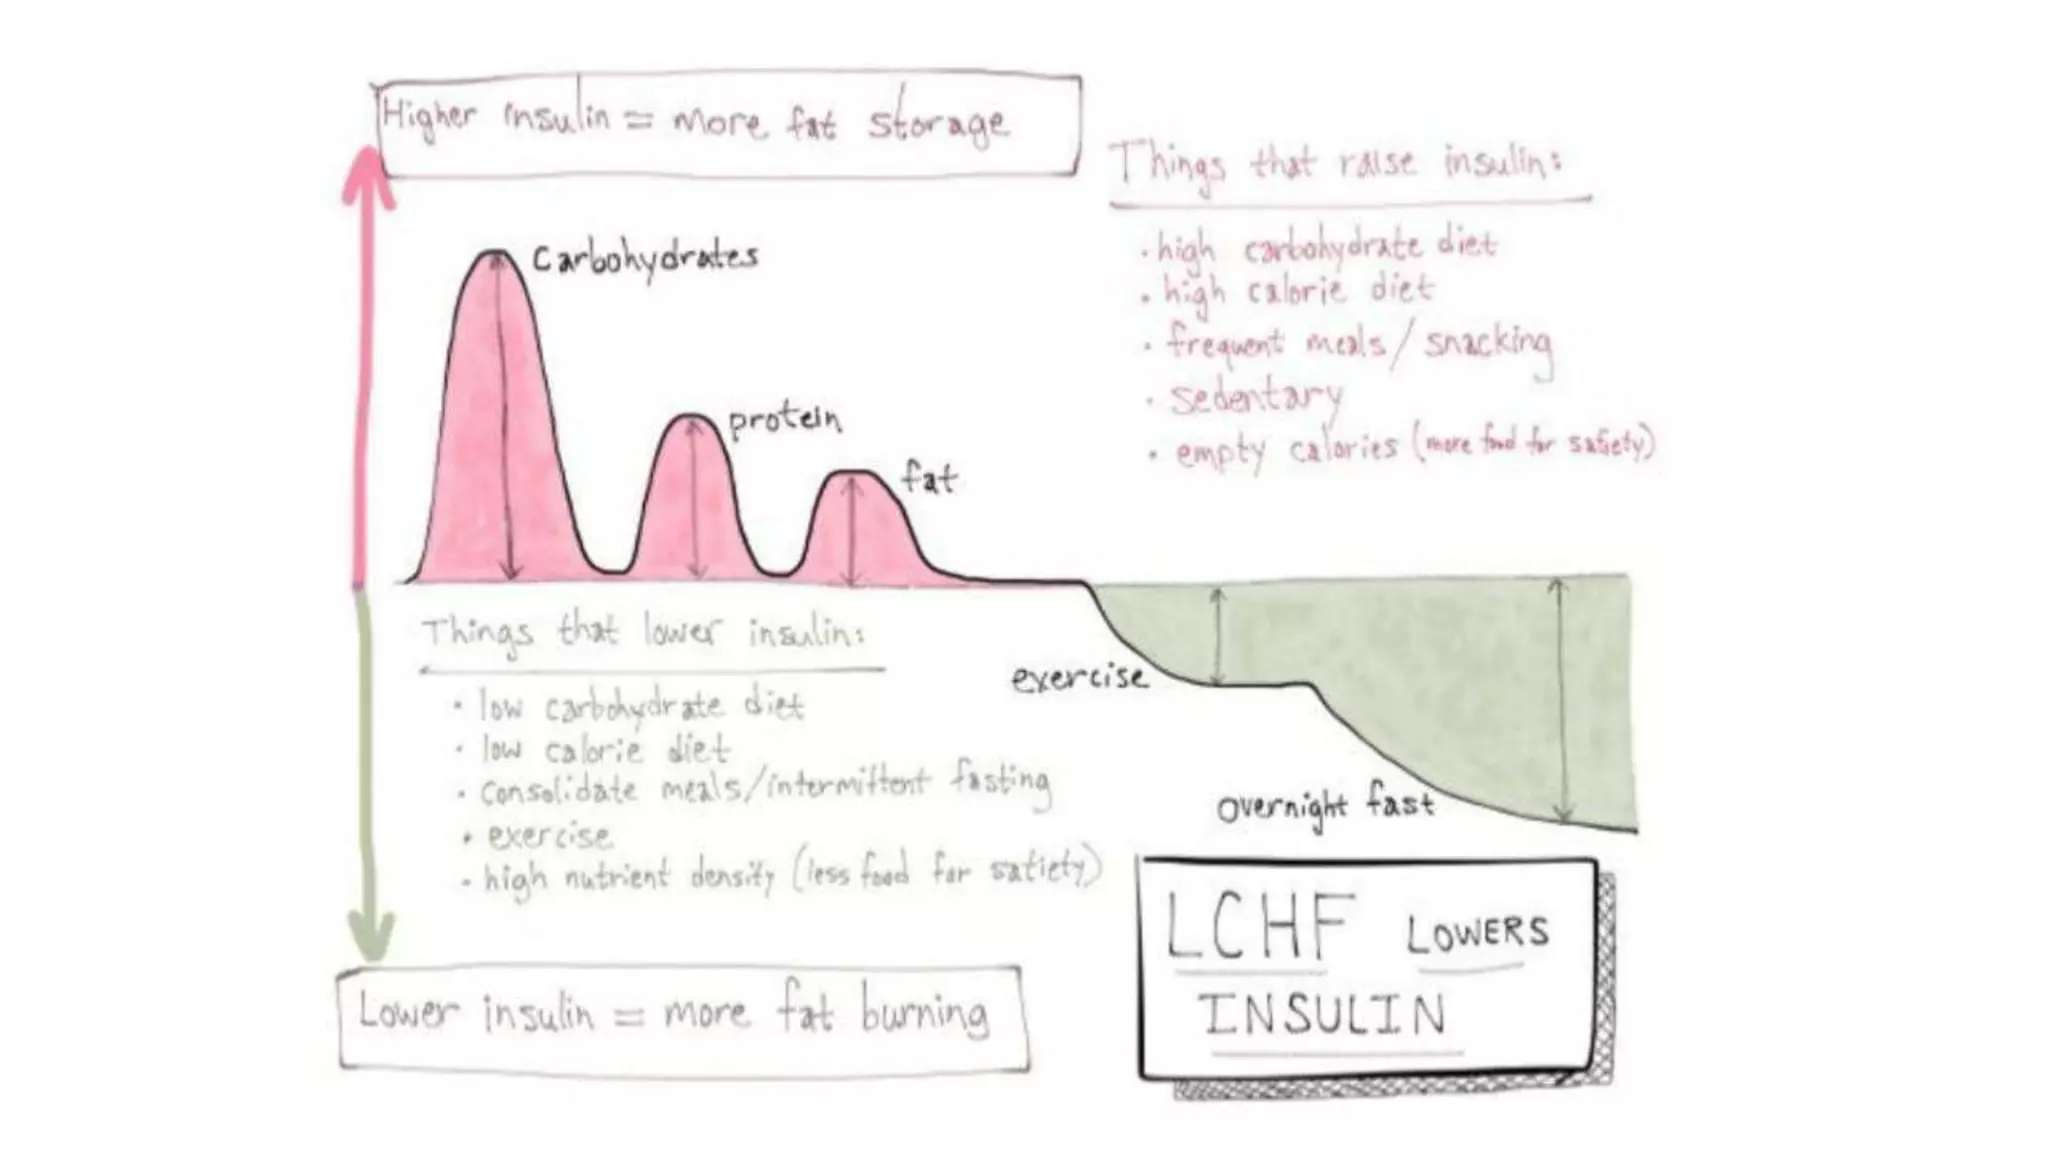 Higher insulin = more fat storage
Things that raise insulin:
· high carbohydrate diet
· high calorie diet
· frequent meals / snacking
· sedentary
· empty calories (more food for satiety)
Carbohydrates
protein
fat
Things that lower insulin:
· low carbohydrate diet
· low calorie diet
· consolidate meals/intermittent fasting
· exercise
· high nutrient density (less food for satiety)
exercise
overnight fast
Lower insulin = more fat burning
LCHF LOWERS
INSULIN